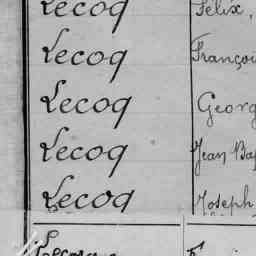 Lecoq Félix,
Lecoq Françoi
Lecoq Georg
Lecoq Jean Bap
Lecoq Joseph